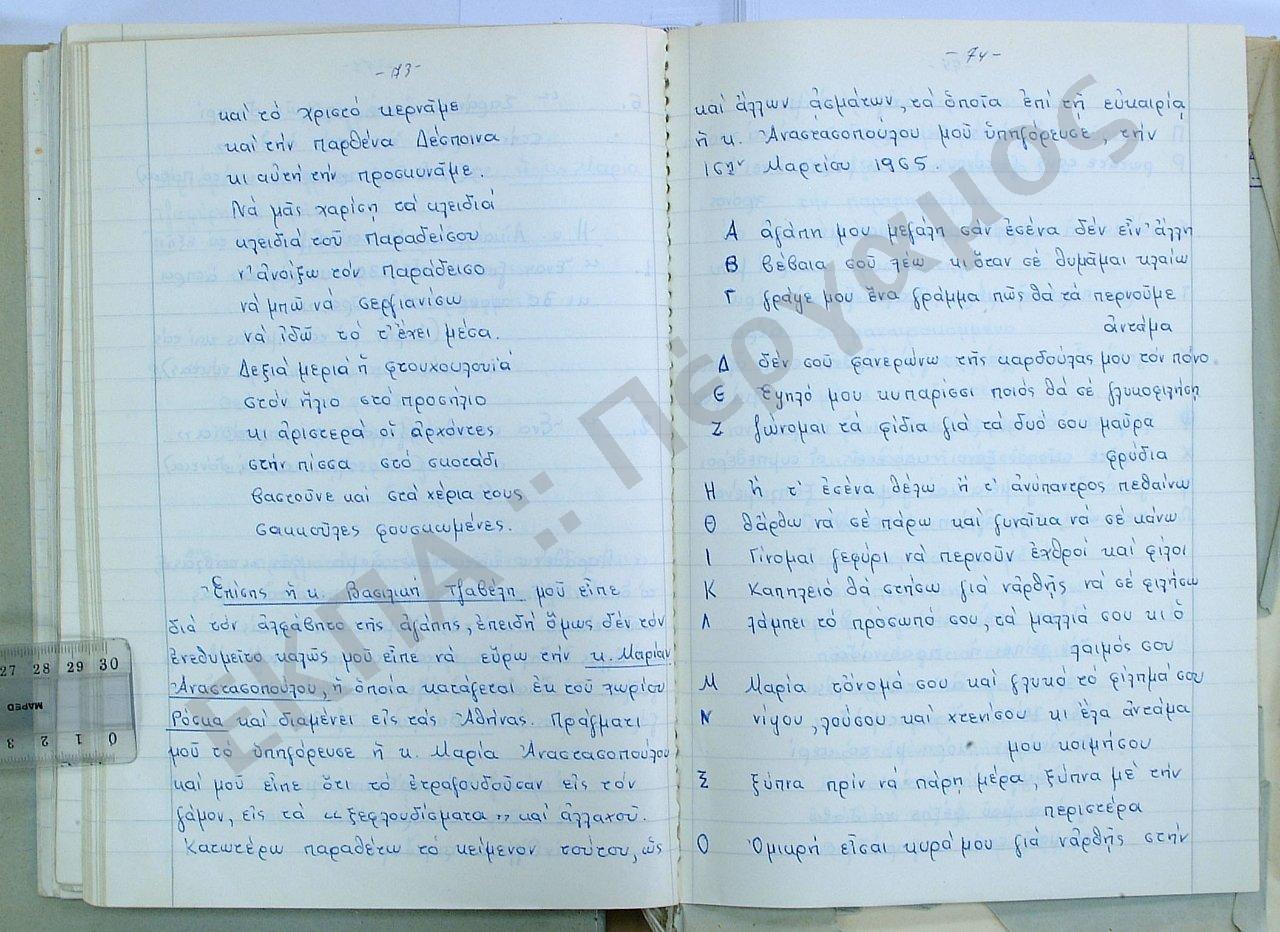 - 73 -
καί τό χριστό κερνᾶμε
καί τήν Παρθένα Δέσποινα
κι αὐτή τήν προσκυνᾶμε.
Νά μᾶς χαρίση τά κλειδιά
κλειδιά τοῦ Παραδείσου
ν' ἀνοίξω τόν παράδεισο
νά μπῶ νά σεργιανίσω
νά ἰδῶ τό τ' ἔχει μέσα.
Δεξιά μεριά ἡ φτουχουλουγιά
στόν ἥλιο στό προσήλιο
κι ἀριστερά οἱ ἀρχόντες
στήν πίσσα στό σκοτάδι
βαστοῦνε καί στά χέρια τους
σακκοῦλες φουσκωμένες.
Ἐπίσης ἡ κ. Βασιλική Τζαβέλη μοῦ εἶπε
διά τόν ἀλφάβητο τῆς ἀγάπης, ἐπειδή ὅμως δέν τόν
ἐνεθυμεῖτο καλῶς μοῦ εἶπε νά εὕρω τήν κ. Μαρίαν
Ἀναστασοπούλου, ἡ ὁποία κατάγεται ἐκ τοῦ χωρίου
Ρόσκα καί διαμένει εἰς τάς Ἀθήνας. Πράγματι
μοῦ τό ὑπηγόρευσε ἡ κ. Μαρία Ἀναστασοπούλου
καί μοῦ εἶπε ὅτι τό ἐτραγουδοῦσαν εἰς τόν
γάμον, εἰς τά « ξεφλουδίσματα » καί ἀλλαχοῦ.
Κατωτέρω παραθέτω τό κείμενον τούτου, ὡς
- 74 -
καί ἄλλων ᾀσμάτων, τά ὁποῖα ἐπί τῇ εὐκαιρίᾳ
ἡ κ. Ἀναστασοπούλου μοῦ ὑπηγόρευσε, τήν
16ην Μαρτίου 1965.
Α ἀγάπη μου μεγάλη σάν ἐσένα δέν εἶν' ἄλλη
Β βέβαια σοῦ λέω κι ὅταν σέ θυμᾶμαι κλαίω
Γ γράψε μου ἕνα γράμμα πῶς θά τά περνοῦμε
ἀντάμα
Δ δέν σοῦ φανερώνω τῆς καρδούλας μου τόν πόνο.
Ε ἐψηλό μου κυπαρίσσι ποιός θά σέ γλυκοφιλήση
Ζ ζώνομαι τά φίδια γιά τά δυό σου μαῦρα
φρύδια
Η ἤ τ' ἐσένα θέλω ἤ τ' ἀνύπαντρος πεθαίνω
Θ θἄρθω νά σέ πάρω καί γυναῖκα νά σέ κάνω
Ι Γίνομαι γεφύρι νά περνοῦν ἐχθροί καί φίλοι
Κ Καπηλειό θά στήσω γιά νἄρθης νά σέ φιλήσω
Λ λάμπει τό πρόσωπό σου, τά μαλλιά σου κι ὁ
λαιμός σου
Μ Μαρία τὄνομά σου καί γλυκό τό φίλημά σου
Ν νίψου, λούσου καί χτενίσου κι ἔλα ἀντάμα
μου κοιμήσου
Ξ ξύπνα πρίν νά πάρη μέρα, ξύπνα μέ τήν
περιστέρα
Ο Ὀμιαρή εἶσαι κυρά μου γιά νἄρθης στήν
ΕΚΠΑ :: Πέργαμος
27 28 29 30
MAPED
3 2 1 0